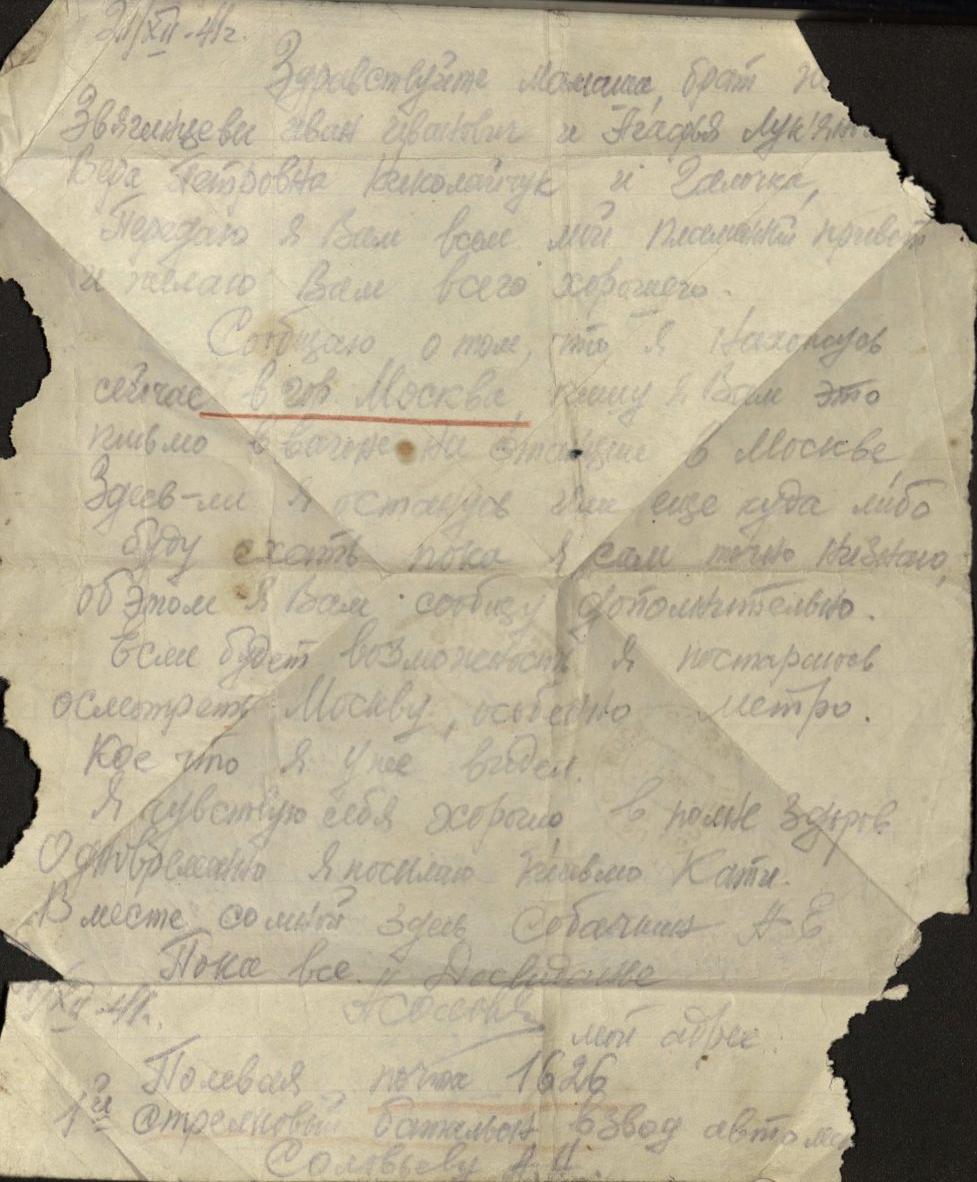 /XII-41г.
Здравствуйте Мамаша, брат
Звягинцевы Иван Иванович и Агафья Лук
Вера Петровна Николайчук и Галочка,
Передаю я Вам всем мой пламений привет
и желаю Вам всего хорошего.
Сообщаю о том, что я Нахожусь
сейчас в гор. Москва, пишу я Вам это
письмо в вагоне на станции в Москве,
Здесь-ли я останусь или еще куда либо
буду ехать пока я сам точно незнаю,
об этом я Вам сообщу дополнительно.
Если будет возможность я постараюсь
осмотреть Москву, особенно метро.
Кое что я уже видел.
Я чувствую себя хорошо, в полне здоров
Одновременно я посылаю письмо Кати.
Вместе сомной здесь Собачкин А Е
Пока все. Досвидание
/XII-41г.
мой адрес:
Полевая почта 1626
1й Стрелковый баталион взвод автома
Соловьеву А.И.